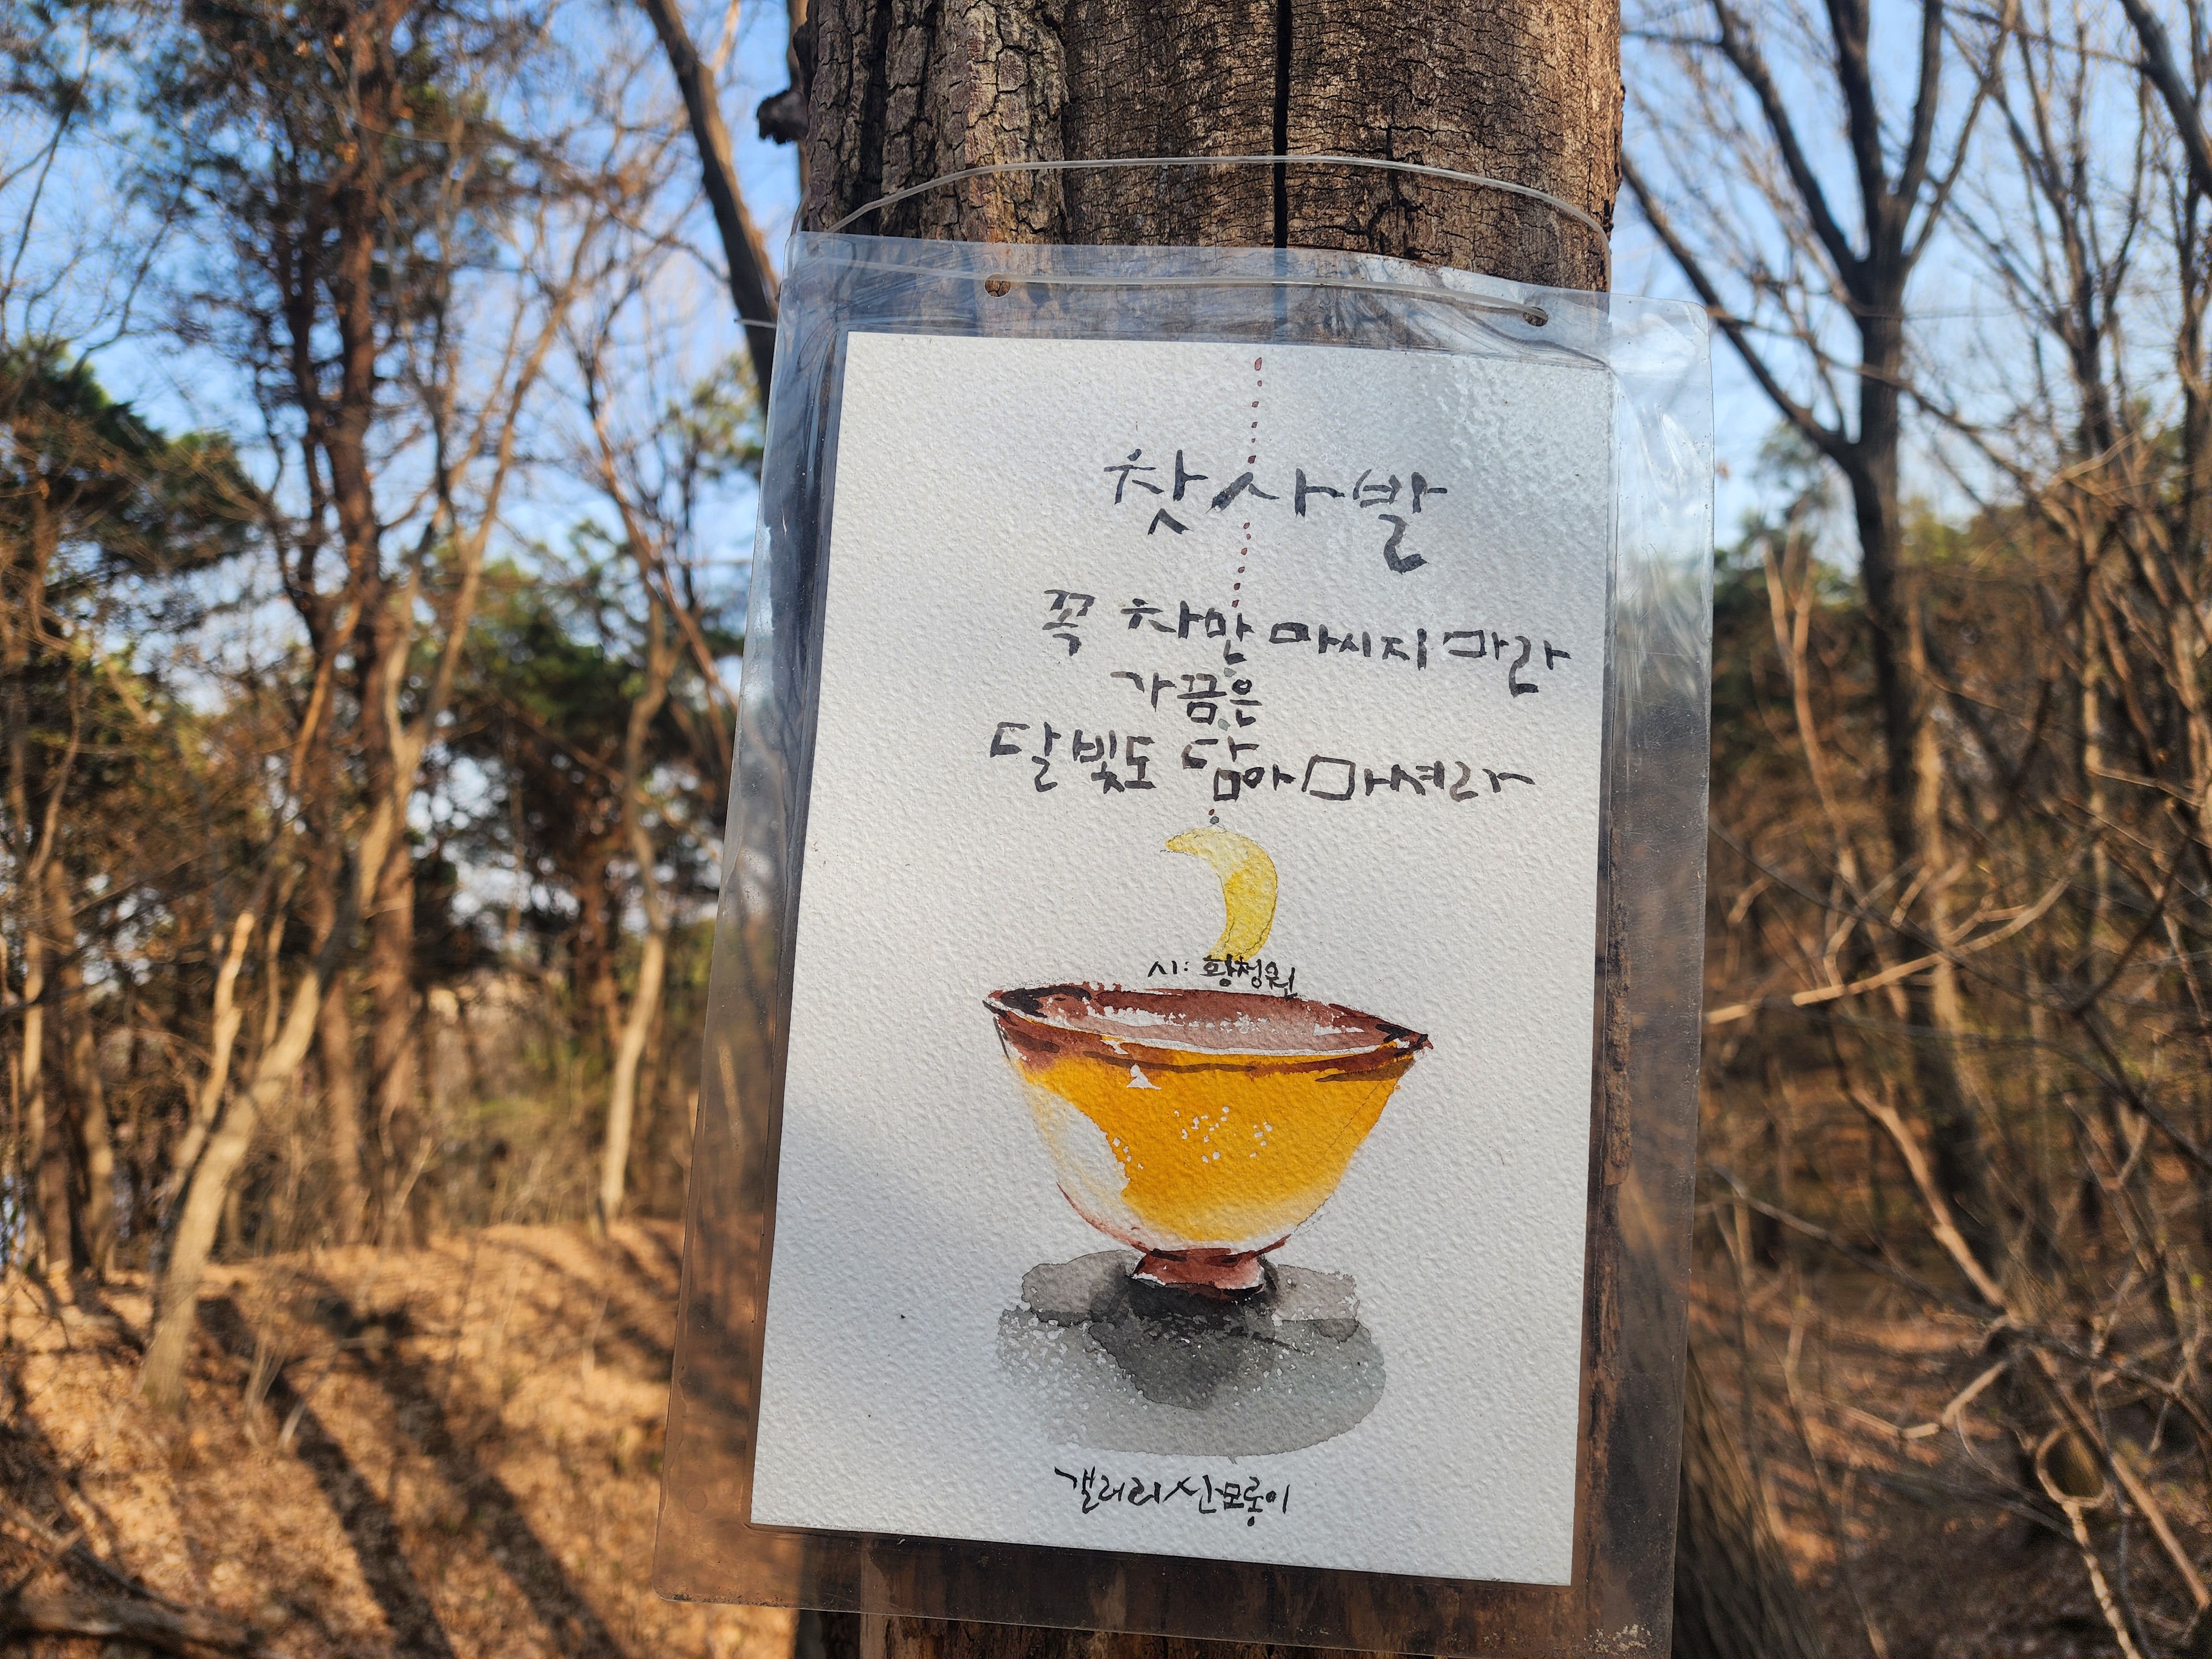 찻사발
꼭 차만 마시지 마라
가끔은
달빛도 담아 마셔라
시: 황청원
갤러리 산모롱이